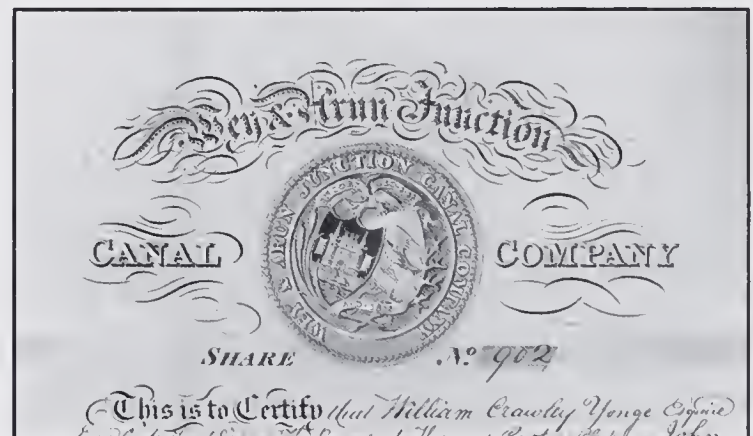 Wey & Arun Junction
WEY & ARUN JUNCTION CANAL COMPANY
CANAL COMPANY
SHARE No. 902
This is to Certify that William Crawley Yonge Esquire